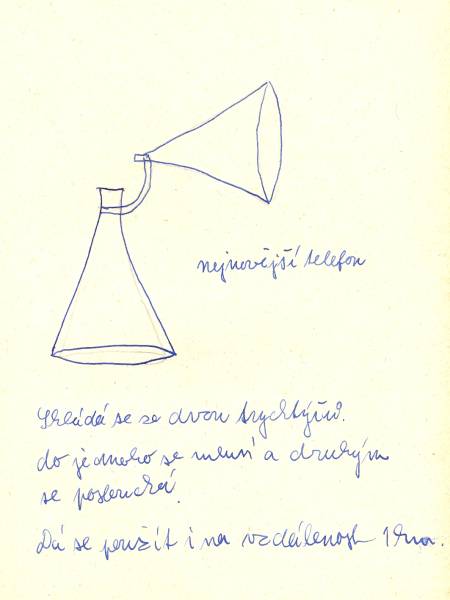 nejnovější telefon
Skládá se ze dvou trychtýřů.
do jednoho se mluví a druhým
se poslouchá.
Dá se použít i na vzdálenost 1 km.